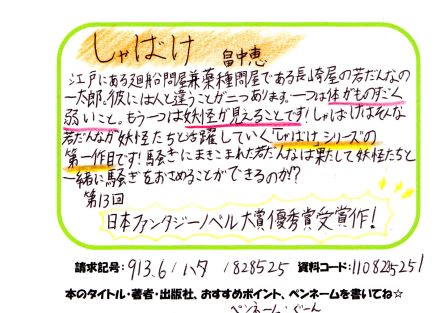 しゃばけ 畠中恵
江戸にある廻船問屋兼薬種問屋である長崎屋の若だんなの
一太郎。彼には人と違うことが二つあります。一つは体がものすごく
弱いこと。もう一つは妖怪が見えることです!しゃばけはそんな
若だんなが妖怪たちと活躍していく「しゃばけ」シリーズの
第一作目です!騒ぎにまきこまれた若だんなは果たして妖怪たちと
一緒に騒ぎをおさめることができるのか!?
第13回
日本ファンタジーノベル大賞優秀賞受賞作!
請求記号:913.6/ハタ 1828525 資料コード:1108285251
本のタイトル・著者・出版社、おすすめポイント、ペンネームを書いてね☆
ペンネーム・ぐーん